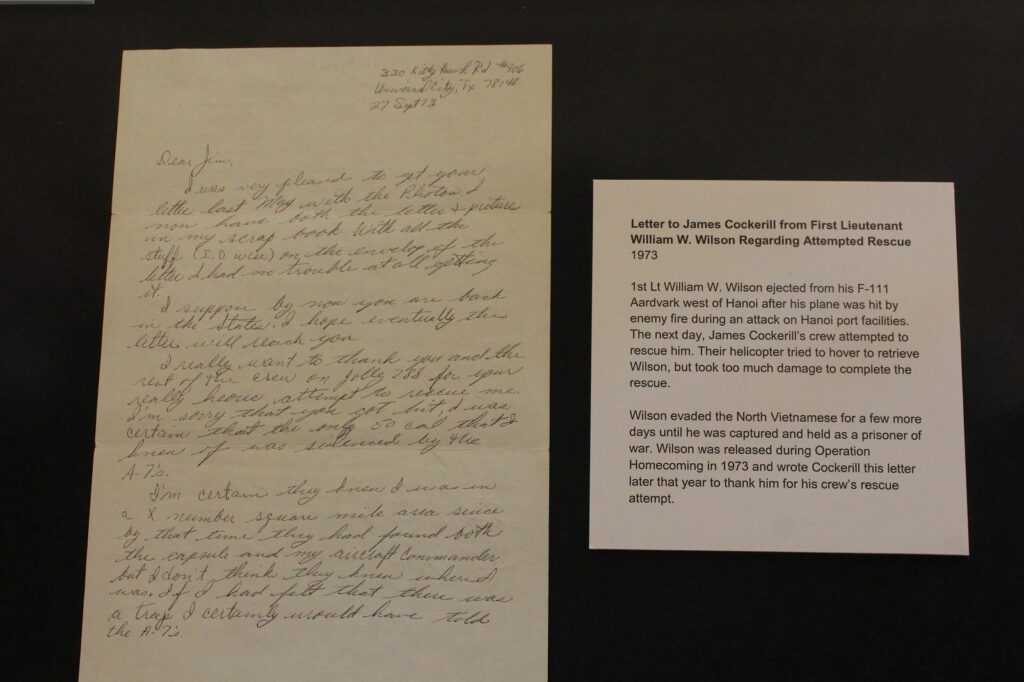 330 Kitty Hawk Rd #906
Universal City, Tx 78148
27 Sept 73
Dear Jim,
I was very pleased to get your
letter last May with the Photos. I
now have both the letter & picture
in my scrap book. With all the
stuff (I.D. wise) on the envelop of the
letter I had no trouble at all getting
it.
I suppose by now you are back
in the States. I hope eventually this
letter will reach you.
I really want to thank you and the
rest of the crew on Jolly 73 for your
really heroic attempt to rescue me.
I'm sorry that you got hit, I was
certain that the only 50 cal that I
knew of was silenced by the
A-7's.
I'm certain they knew I was in
a X number square mile area since
by that time they had found both
the capsule and my aircraft commander
but I don't think they knew where I
was. If I had felt that there was
a trap I certainly would have told
the A-7's.
Letter to James Cockerill from First Lieutenant
William W. Wilson Regarding Attempted Rescue
1973
1st Lt William W. Wilson ejected from his F-111
Aardvark west of Hanoi after his plane was hit by
enemy fire during an attack on Hanoi port facilities.
The next day, James Cockerill's crew attempted to
rescue him. Their helicopter tried to hover to retrieve
Wilson, but took too much damage to complete the
rescue.
Wilson evaded the North Vietnamese for a few more
days until he was captured and held as a prisoner of
war. Wilson was released during Operation
Homecoming in 1973 and wrote Cockerill this letter
later that year to thank him for his crew's rescue
attempt.